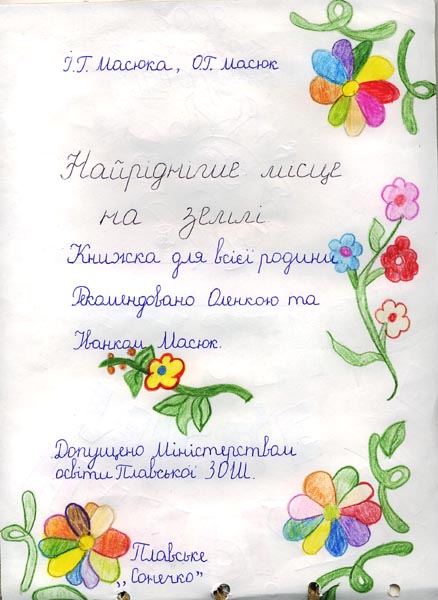 І.Г. Масюка, О.Г. Масюк
Найрідніше місце
на землі
Книжка для всієї родини
Рекомендовано Оленкою та
Іванком Масюк.
Допущено Міністерствам
освіти Плавської ЗОШ.
Плавське
„Сонечко”